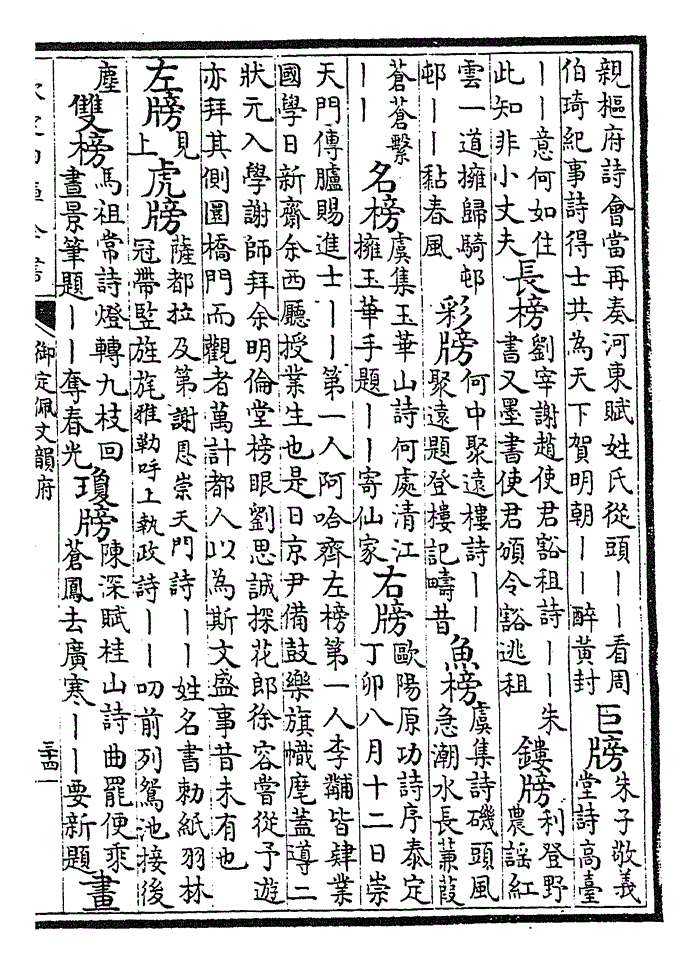 親樞府詩會當再奏河東賦姓氏從頭丨丨看周
伯琦紀事詩得士共為天下賀明朝丨丨醉黃封
巨牓
朱子敬義
堂詩高臺
丨丨意何如住
此知非小丈夫
長榜
劉宰謝趙使君豁租詩丨丨朱
書又墨書使君頒令豁逃租
鏤牓
利登野
農謡紅
雲一道擁歸騎邨
邨丨丨黏春風
彩牓
何中聚遠樓詩丨丨
聚遠題登樓記疇昔
魚榜
虞集詩磯頭風
急潮水長蒹葭
蒼蒼繫
丨丨
名榜
虞集玉華山詩何處清江
擁玉華手題丨丨寄仙家
右牓
歐陽原功詩序泰定
丁卯八月十二日崇
天門傳臚賜進士丨丨第一人阿哈齊左榜第一人李黼皆肄業
國學日新齋余西廳授業生也是日京尹備鼓樂旗幟麾蓋導二
狀元入學謝師拜余明倫堂榜眼劉思誠探花郎徐容嘗從予遊
亦拜其側圜橋門而觀者萬計都人以為斯文盛事昔未有也
左牓
見
上
虎牓
薩都拉及第謝恩崇天門詩丨丨姓名書勅紙羽林
冠帶豎旌旄雅勒呼上執政詩丨丨叨前列鴛池接後
塵
雙榜
馬祖常詩燈轉九枝回
晝景筆題丨丨奪春光
瓊牓
陳深賦桂山詩曲罷便乘
蒼鳳去廣寒丨丨要新題
畫
御定佩文韻府
三十四